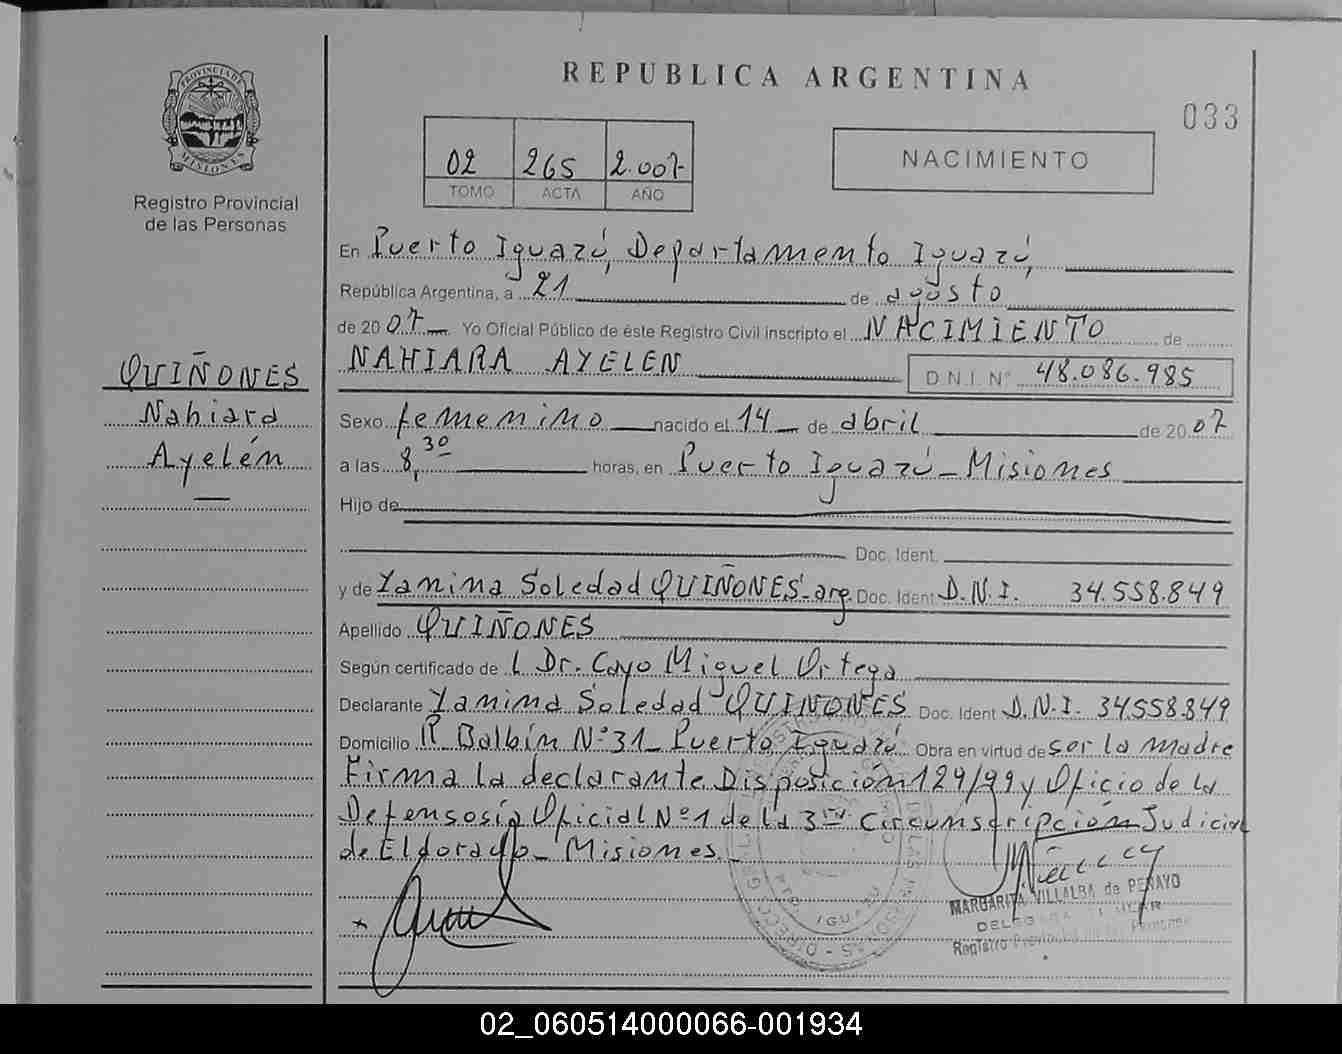 REPUBLICA ARGENTINA
033
PROVINCIA DE
MISIONES
Registro Provincial
de las Personas
02 265 2.007
TOMO ACTA AÑO
NACIMIENTO
En Puerto Iguazú, Departamento Iguazú,
República Argentina, a 21 de agosto
de 2007 Yo Oficial Público de éste Registro Civil inscripto el NACIMIENTO de
NAHIARA AYELEN D.N.I. Nº 48.086.985
QUIÑONES
Nahiara
Ayelén
Sexo femenino nacido el 14 de abril de 2007
a las 8,30 horas, en Puerto Iguazú - Misiones
Hijo de
Doc. Ident.
y de Yanina Soledad QUIÑONES - arg. Doc. Ident D.N.I. 34.558.849
Apellido QUIÑONES
Según certificado de L Dr. Cayo Miguel Ortega
Declarante Yanina Soledad QUIÑONES Doc. Ident D.N.I. 34558849
Domicilio R. Balbín Nº 31 - Puerto Iguazú Obra en virtud de ser la madre
Firma la declarante Disposición 129/99 y Oficio de la
Defensosía Oficial Nº 1 de la 3ra Circunscripción Judicial
de Eldorado - Misiones. -
PTO. IGUAZU
MARGARITA VILLALBA de PENAYO
Registro Provincial de las Personas
02_060514000066-001934